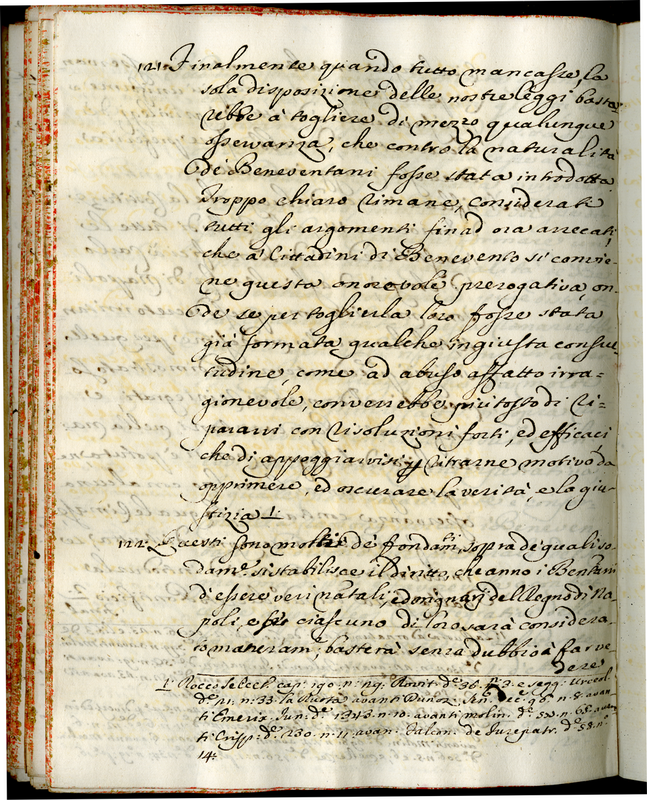 121. Finalmente quando tutto mancasse, la
sola disposizione delle nostre leggi basta
rebbe à togliere di mezzo qualunque
osservanza, che contro la naturalità
de' Beneventani fosse stata introdotta
Troppo chiaro rimane, considerati
tutti gli argomenti finad ora arrecati,
che à Cittadini di Benevento si convie=
ne questa onorevole prerogativa, on=
de se per toglierla loro fosse stata
già formata qualche ingiusta consue
tudine, come ad abuso affatto irra=
gionevole, converrebbe più tosto di ri=
pararvi con risoluzioni forti, ed efficaci
che di appoggiarvisi, ritrarne motivo da
opprimere, ed oscurare la verità, e la giu=
stizia 1:
122. Questi sono molti de' fondam.ti sopra de' quali so
dam.te si stabilisce il diritto, che anno i
d'essere veri natali, ed originarj del Regno di Na
poli, e se ciascuno di loro sarà considera
to maturam. basterà senza dubbio à far ve
dere
1: Rocco select. cap: 190. n: 119. Rovit. d.e 36. n. 3. e segg.
n: 33. avanti dec. 96. n: 8. avan
ti Jun. d.e 1313. n: 10. avanti molin. d.e 52. n: 65.
ti Crisp. d.e 230. n: 11. avan. Falcon. de d.e 58. n.o
14: